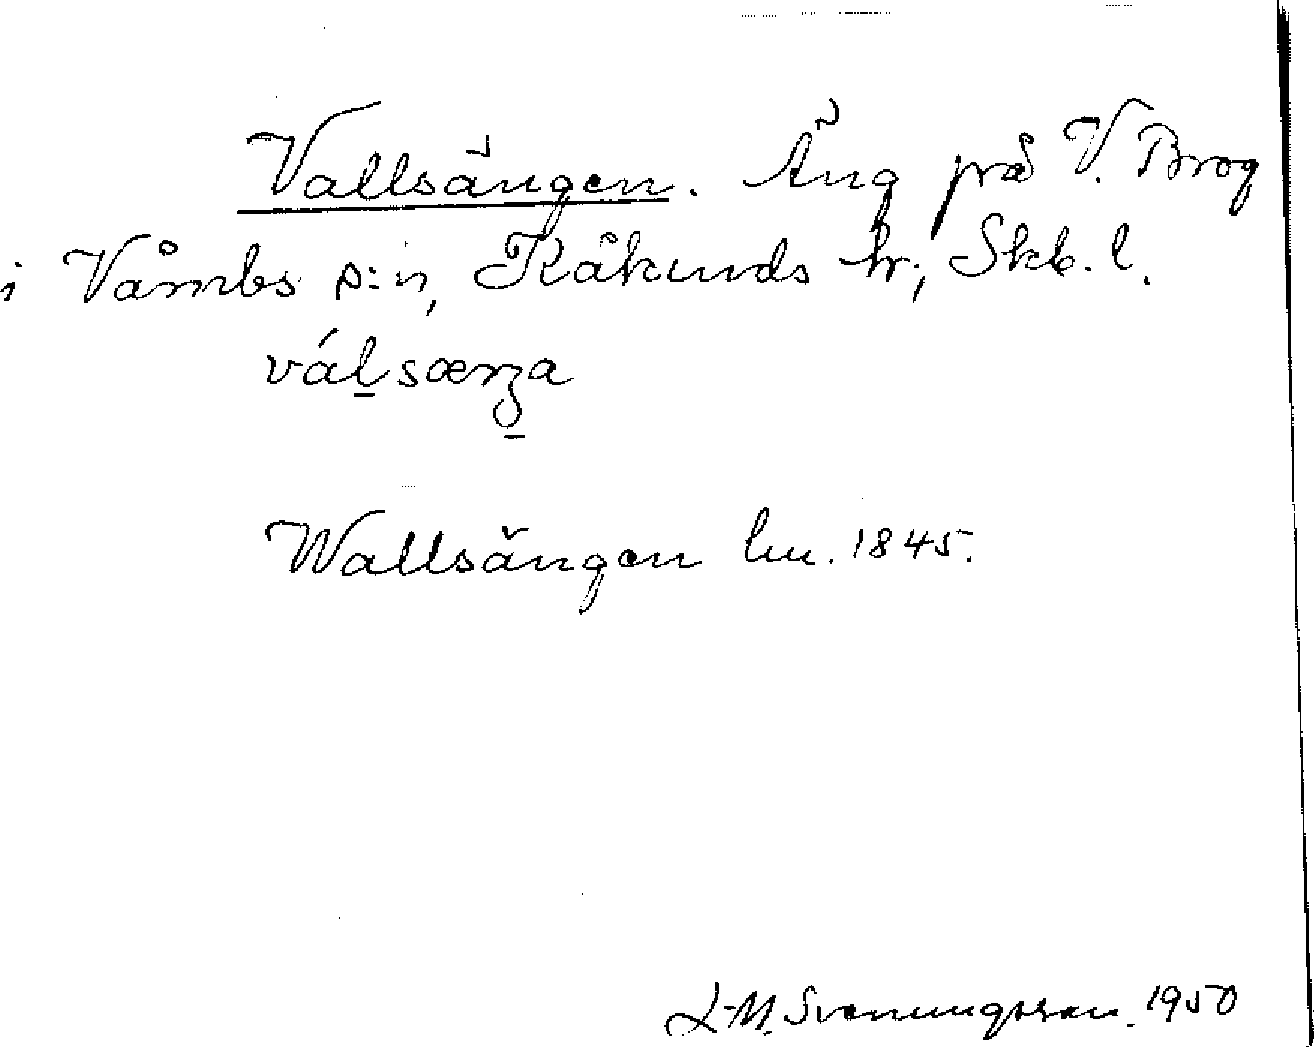 Vallsängen. Äng på V. Brog
i Våmbs s:n, Kåkinds hr; Skb. l.
Wallsängen lm. 1845.
L-M. Svenungsson. 1950